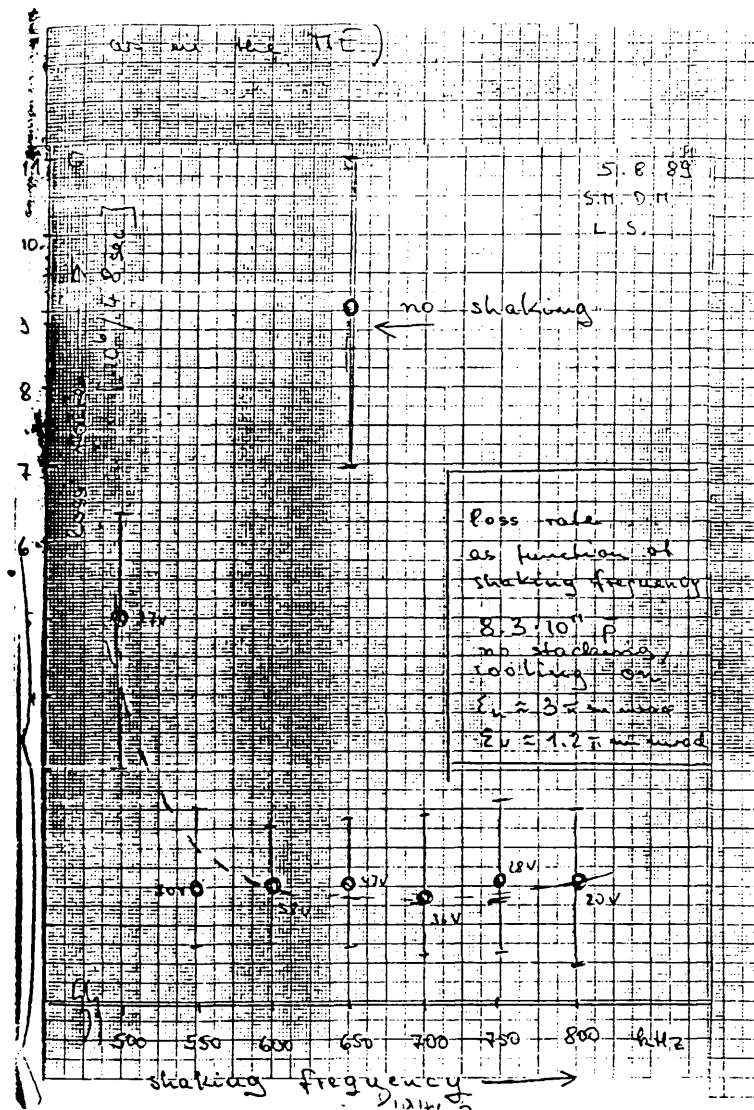 as in the ME)
5.8.89
S.M. D.M.
L.S.
10
9
8
7
6
5
loss rate
[10⁶/48 sec]
no shaking
loss rate
as function of
shaking frequency
8.3·10¹¹ p̄
no stacking,
cooling on,
εh ≈ 3π mm mrad
εv ≈ 1.2π mm mrad
37V
30V
58V
47V
36V
28V
20V
500 550 600 650 700 750 800 kHz
shaking frequency